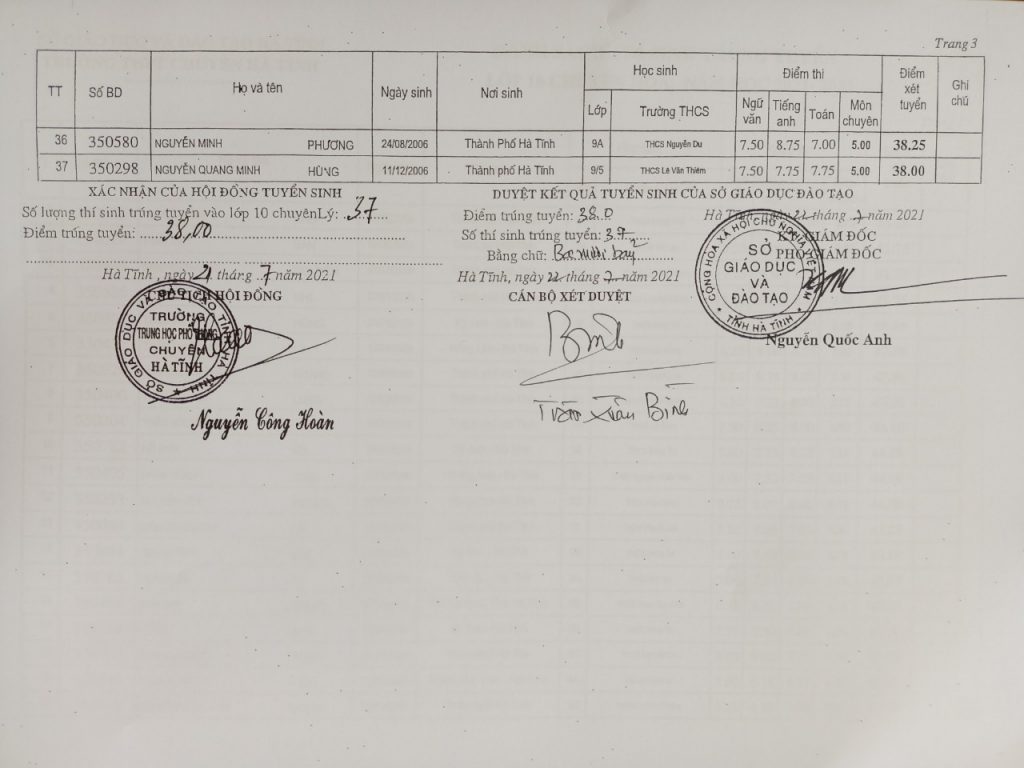 Trang 3
TT Số BD Họ và tên Ngày sinh Nơi sinh Học sinh Điểm thi Điểm xét tuyển Ghi chú
Lớp Trường THCS Ngữ văn Tiếng anh Toán Môn chuyên
36 350580 NGUYỄN MINH PHƯƠNG 24/08/2006 Thành Phố Hà Tĩnh 9A THCS Nguyễn Du 7.50 8.75 7.00 5.00 38.25
37 350298 NGUYỄN QUANG MINH HÙNG 11/12/2006 Thành phố Hà Tĩnh 9/5 THCS Lê Văn Thiêm 7.50 7.75 7.75 5.00 38.00
XÁC NHẬN CỦA HỘI ĐỒNG TUYỂN SINH
Số lượng thí sinh trúng tuyển vào lớp 10 chuyênLý: .37....
Điểm trúng tuyển: ......38,00......
Hà Tĩnh , ngày 21 tháng .7 năm 2021
CHỦ TỊCH HỘI ĐỒNG
SỞ GIÁO DỤC VÀ ĐÀO TẠO TỈNH HÀ TĨNH
TRƯỜNG
TRUNG HỌC PHỔ THÔNG
CHUYÊN
HÀ TĨNH
Nguyễn Công Hoàn
DUYỆT KẾT QUẢ TUYỂN SINH CỦA SỞ GIÁO DỤC ĐÀO TẠO
Điểm trúng tuyển: 38.0
Số thí sinh trúng tuyển: 37
Bằng chữ: Ba mươi bảy
Hà Tĩnh, ngày 22 tháng .7. năm 2021
CÁN BỘ XÉT DUYỆT
Trần Xuân Bình
Hà Tĩnh, ngày 22 tháng .7 năm 2021
KT GIÁM ĐỐC
PHÓ GIÁM ĐỐC
CỘNG HÒA XÃ HỘI CHỦ NGHĨA VIỆT NAM
SỞ
GIÁO DỤC
VÀ
ĐÀO TẠO
TỈNH HÀ TĨNH
Nguyễn Quốc Anh